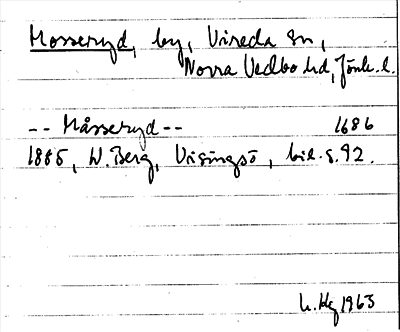 Mosseryd, by, Vireda sn,
Norra Vedbo hd, Jönk. l.
-- Måsseryd -- 1686
1885, W. Berg, Visingsö, bil. s. 92.
h. Hg 1963